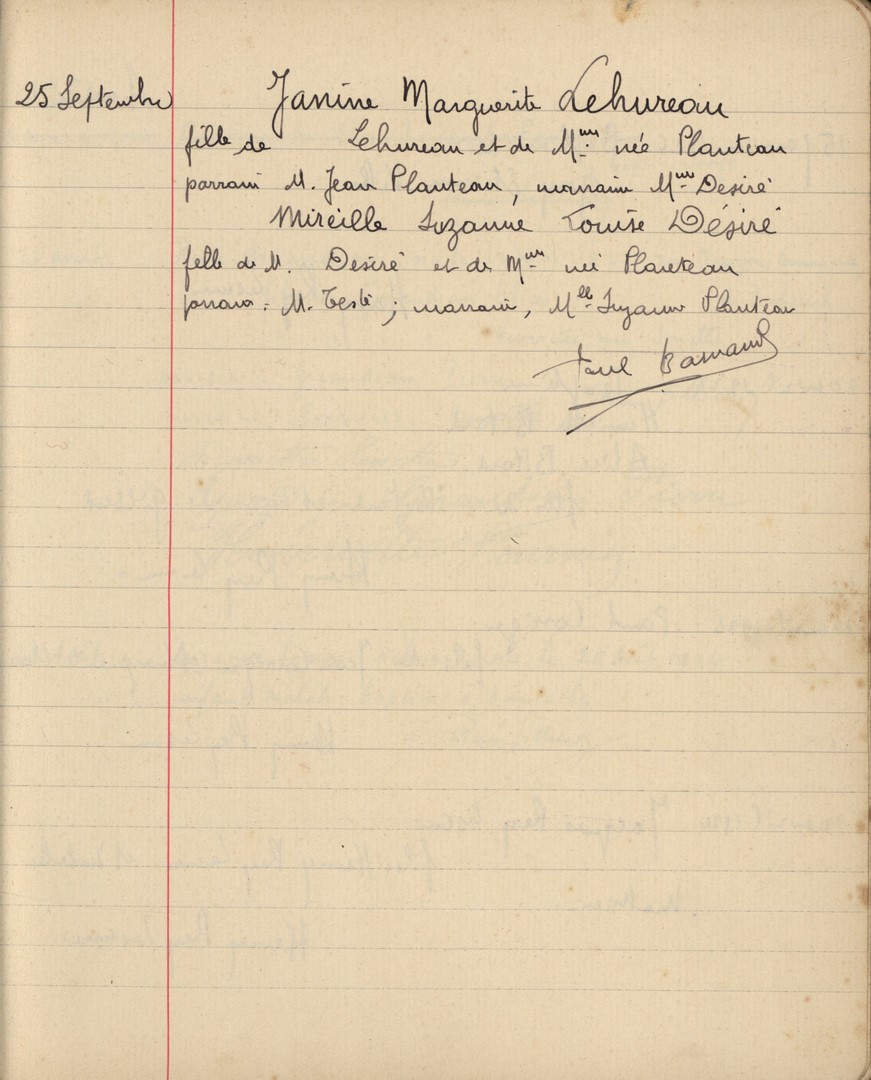 25 Septembre Janine Marguerite Lehureau
fille de Lehureau et de Mme née Planteau
parrain M. Jean Planteau, marraine Mme Desiré
Mireille Suzanne Louise Désiré
fille de M. Desiré et de Mme née Planteau
parrain : M. Testé ; marraine, Mlle Suzanne Planteau
Paul Barnaud